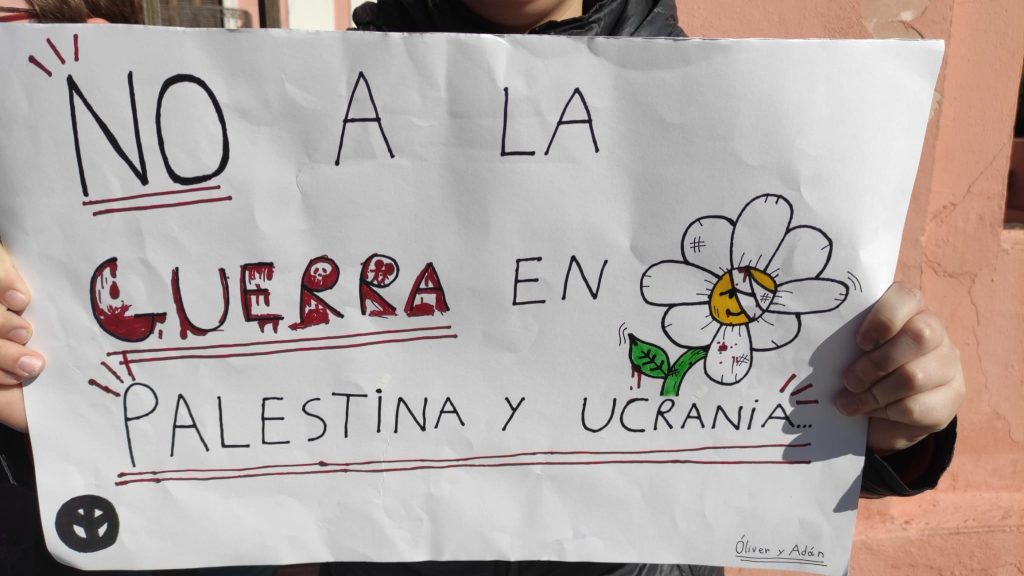 NO A LA
GUERRA EN
PALESTINA Y UCRANIA...
Óliver y Adán